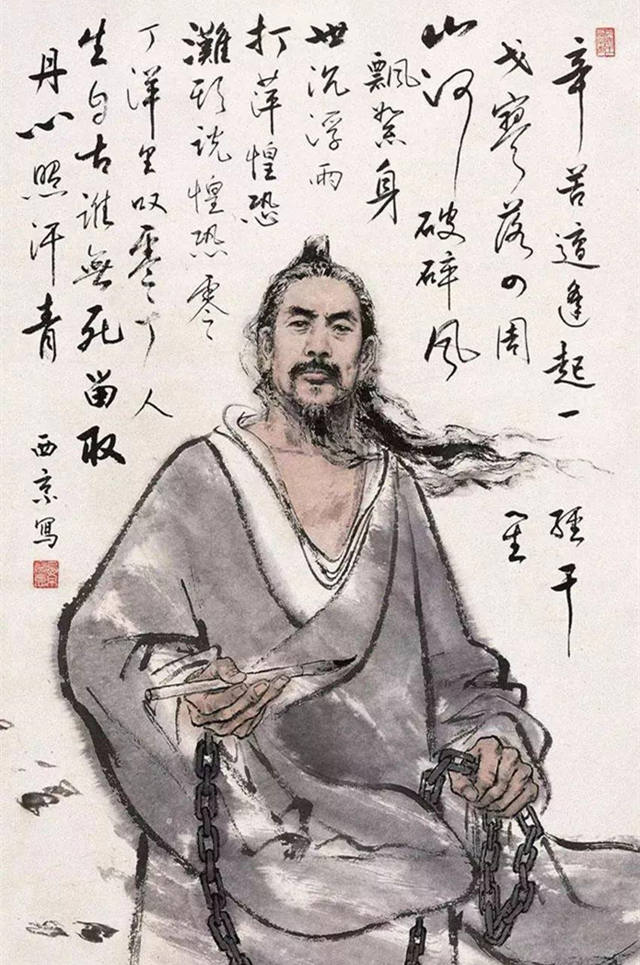 辛苦遭逢起一經干
戈寥落四周星
山河破碎風
飄絮身
世沉浮雨
打萍惶恐
灘頭說惶恐零
丁洋里叹零丁人
生自古誰無死留取
丹心照汗青
西京寫